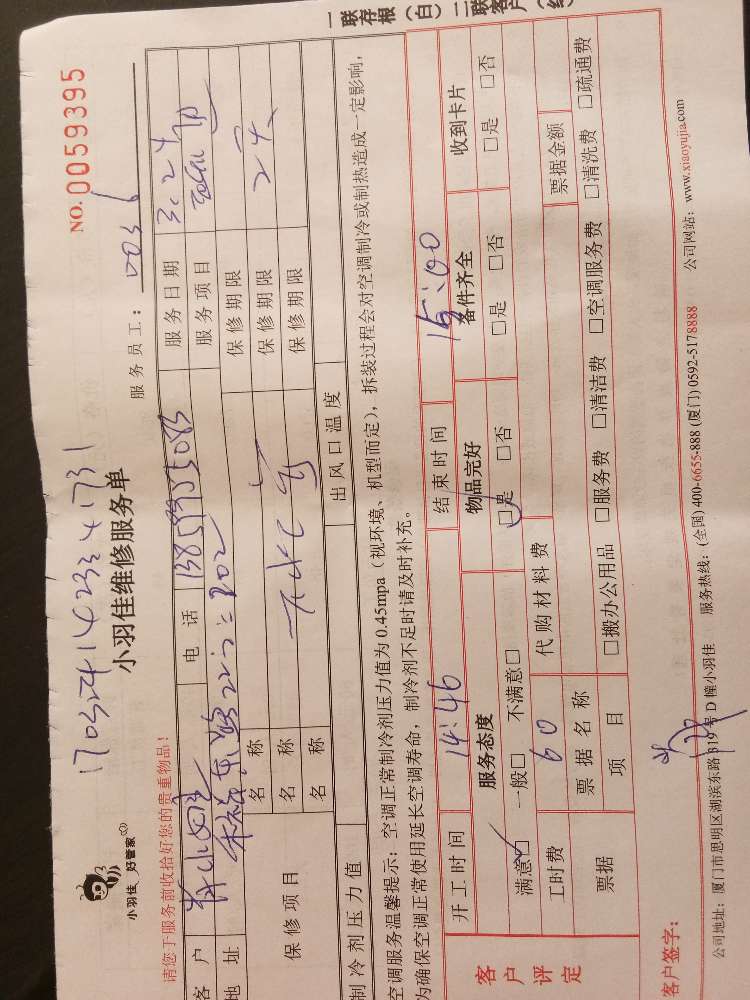 一联存根（白）二联客户（红
NO. 0059395
17032414233 41731
小羽佳 好管家
小羽佳维修服务单
服务员工：
请您于服务前收拾好您的贵重物品！
客户 电话 服务日期 3.24
地址 服务项目
保修项目 名称 保修期限
名称 保修期限
名称 保修期限
制冷剂压力值 出风口温度
空调服务温馨提示：空调正常制冷剂压力值为 0.45mpa（视环境、机型而定），拆装过程会对空调制冷或制热造成一定影响，
为确保空调正常使用延长空调寿命，制冷剂不足时请及时补充。
客户评定 开工时间 14:46 结束时间 15:00
服务态度 物品完好 备件齐全 收到卡片
满意□ 一般□ 不满意□ □是 □否 □是 □否 □是 □否
工时费 60 代购材料费
票据 票据名称 票据金额
项目 □搬办公用品 □服务费 □清洁费 □空调服务费 □清洗费 □疏通费
客户签字：
公司地址：厦门市思明区湖滨东路 319 号 D 幢小羽佳 服务热线：(全国) 400-6655-888 (厦门) 0592-5178888 公司网站：www.xiaoyujia.com